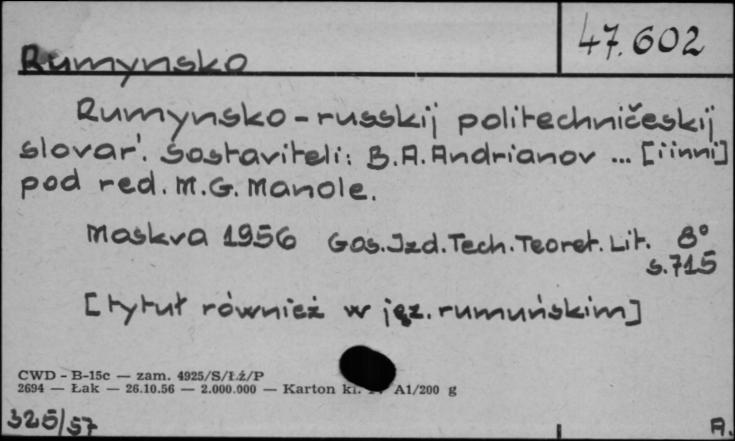 47.602
Rumynsko
Rumynsko-russkij politechničeskij
slovar'. Sostaviteli: B.A. Andrianov ... [i inni]
pod red. M.G. Manole.
Moskva 1956 Gos. Izd. Tech. Teoret. Lit. 8°
s. 715
[tytuł również w jęz. rumuńskim]
CWD - B-15c — zam. 4925/S/Łż/P
2694 — Łak — 26.10.56 — 2.000.000 — Karton kl. A1/200 g
325/57 A.